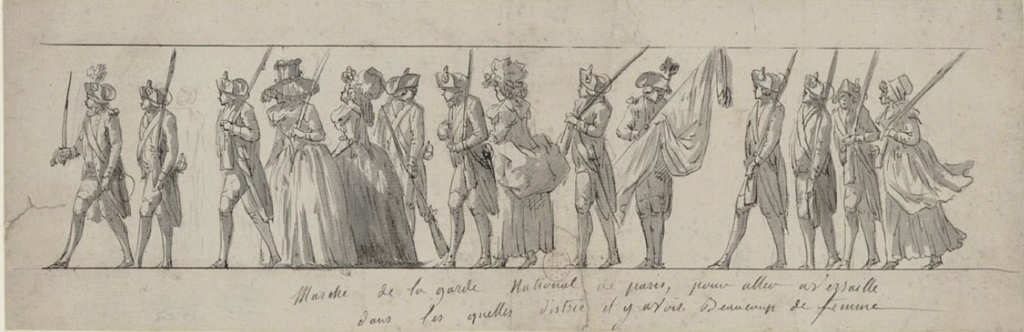 2
Marche de la garde National de paris, pour aller a versaille
dans les quelles distric il y avoit Beaucoup de femme